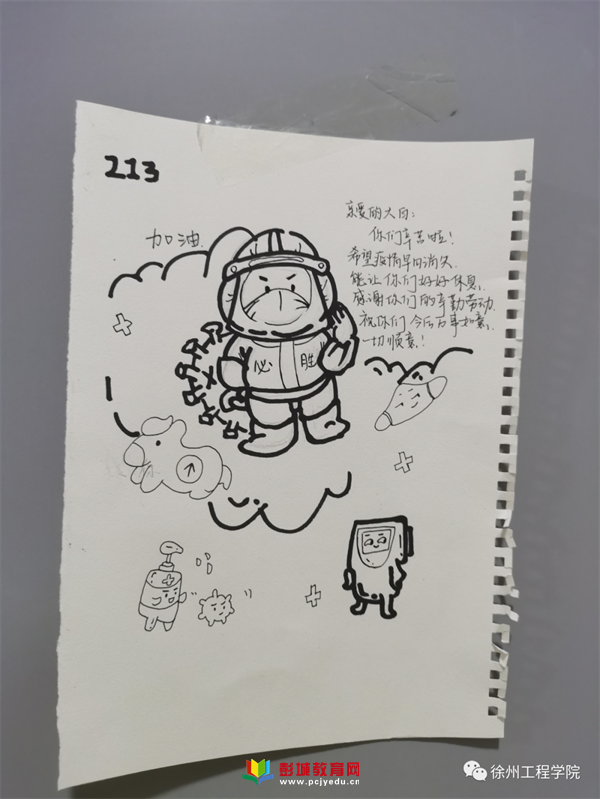 213
加油
亲爱的大白:
你们辛苦啦!
希望疫情早日消失
能让你们好好休息,
感谢你们的辛勤劳动
祝你们今后万事如意,
一切顺意!
必 胜
彭城教育网
www.pcjyedu.cn
徐州工程学院